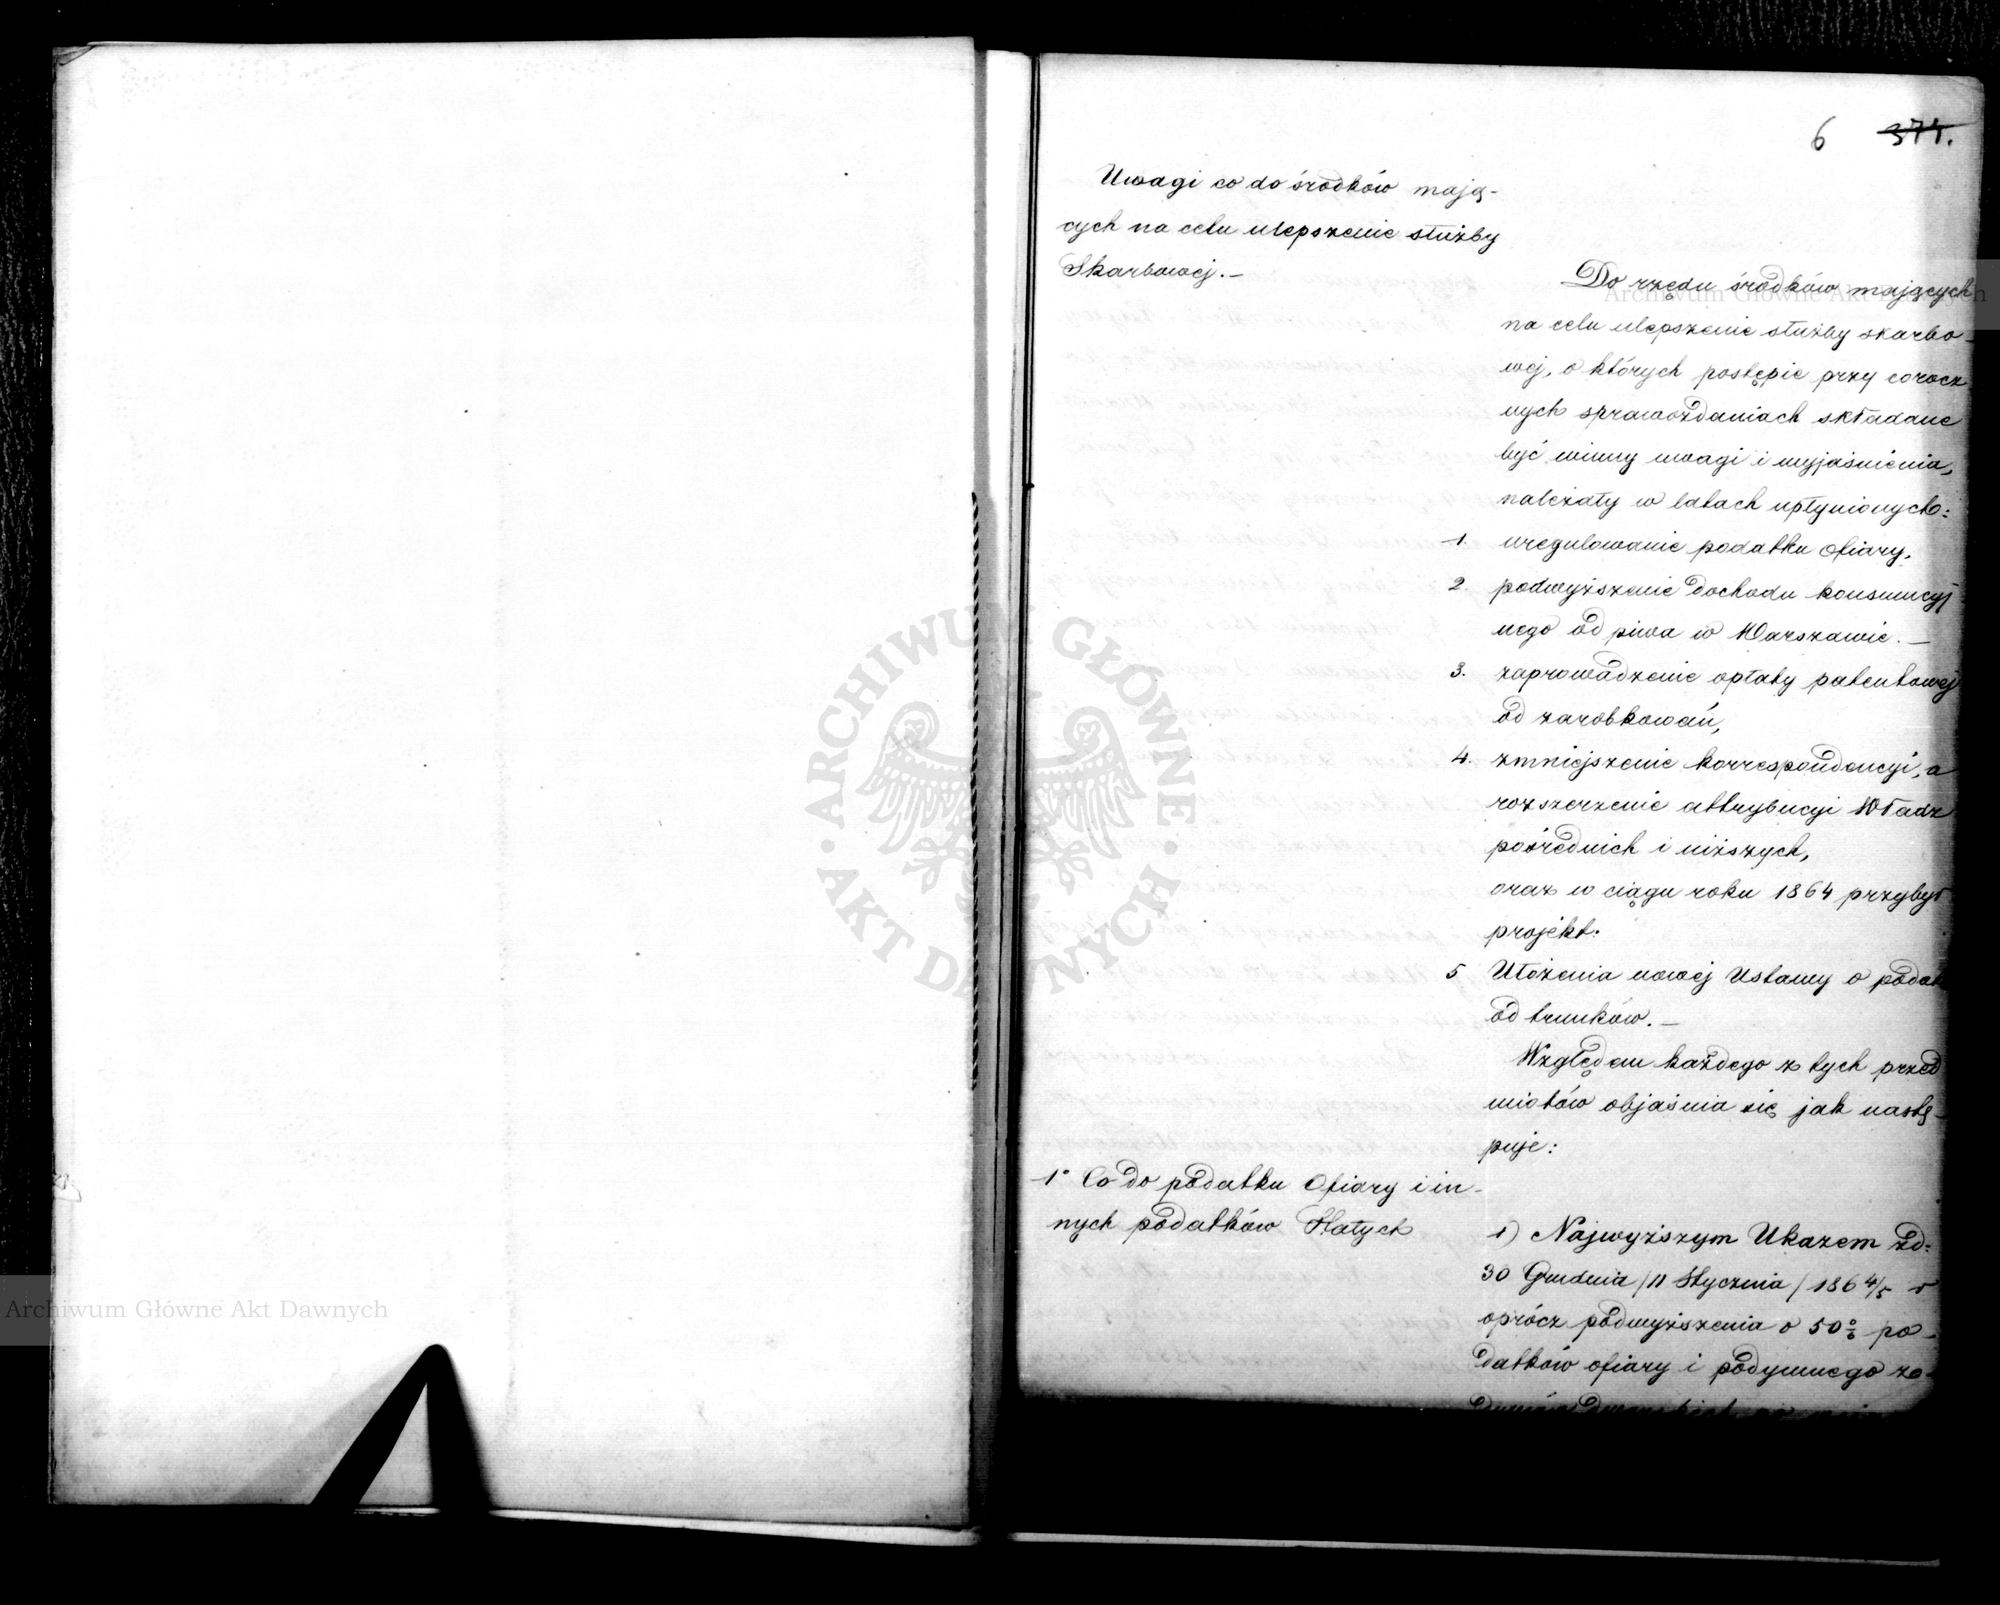 6 374.
Uwagi co do środków mają-
cych na celu ulepszenie służby
Skarbowej.-
Do rzędu środków mających
na celu ulepszenie służby skarbo-
wej, o których postępie przy corocz
nych sprawozdaniach składane
być winny uwagi i wyjaśnienia,
należały w latach upłynionych:
1. uregulowanie podatku ofiary,
2. podwyższenie dochodu konsumcyj
nego od piwa w Warszawie.-
3. zaprowadzenie opłaty patentowej
od zarobkowań,
4. zmniejszenie korrespondencyi, a
rozszerzenie attrybucyi Władz
pośrednich i niższych,
oraz w ciągu roku 1864 przybył
projekt:
5 Ułożenia nowej Ustawy o podat
od trunków.-
Względem każdego z tych przed
miotów objaśnia się jak nastę-
puje:
1° Co do podatku Ofiary i in-
nych podatków Stałych
1) Najwyższym Ukazem zd:
30 Grudnia /11 Stycznia/ 1864/5 r
oprócz podwyższenia o 50% po-
datków ofiary i podymnego ze
Archiwum Główne Akt Dawnych
Archiwum Główne Akt Dawnych
ARCHIWUM GŁÓWNE
AKT DAWNYCH